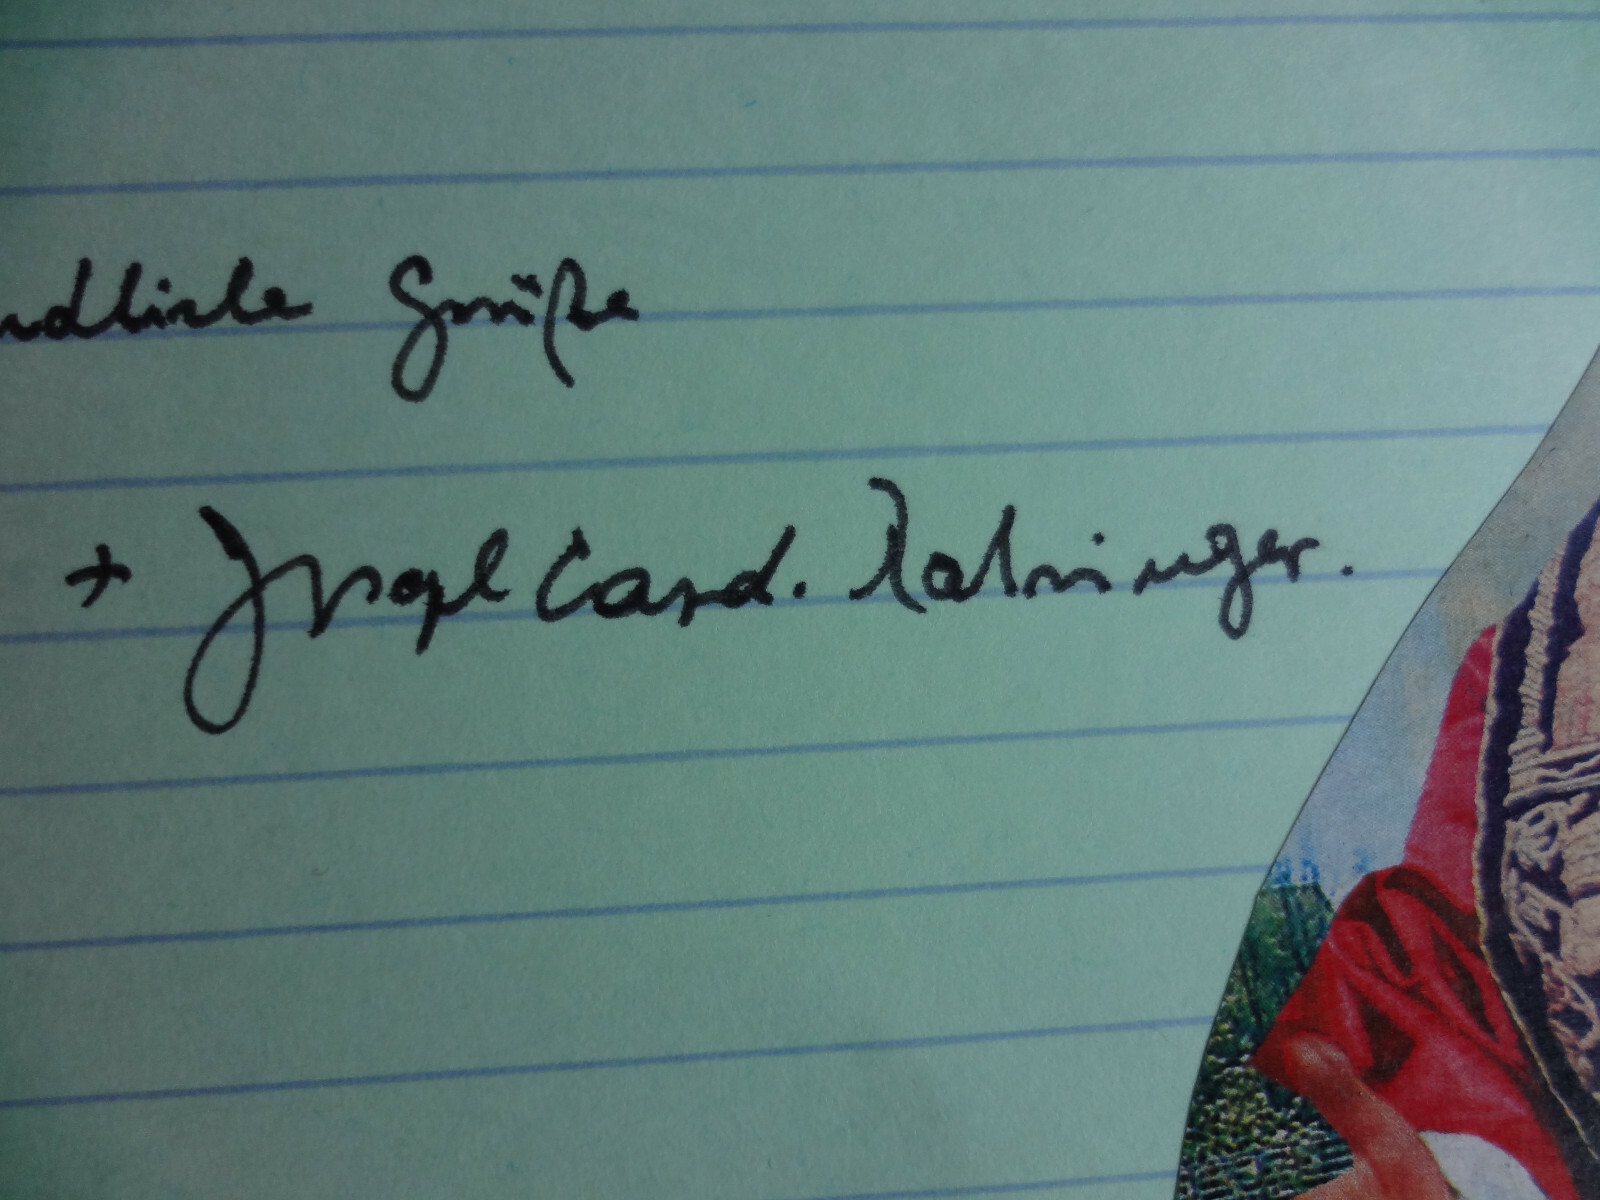 ndliche Grüße
+ Joseph Card. Ratzinger.